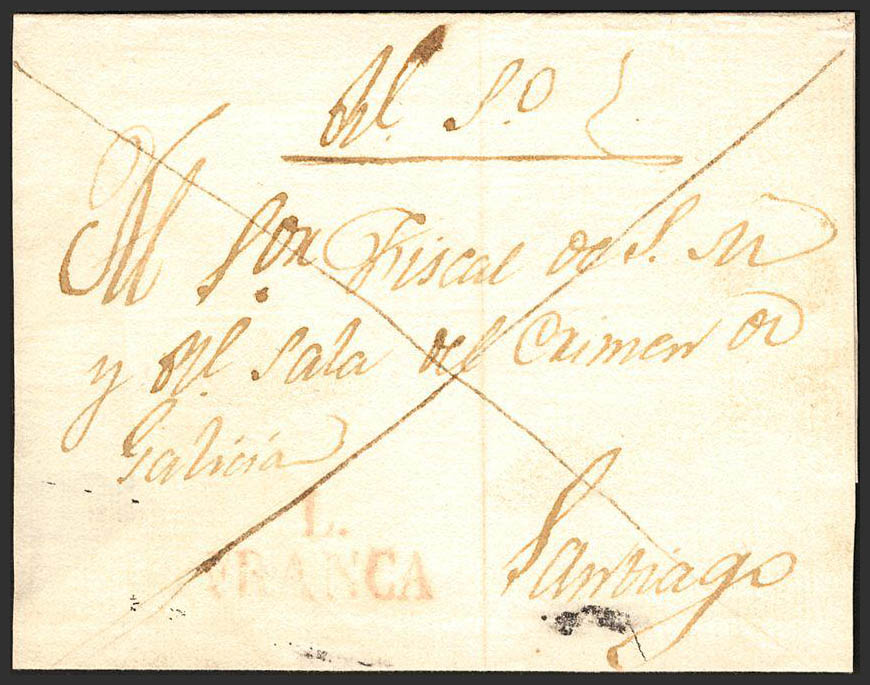 Rl. S.o
Al Sor. Fiscal de S. M
y Rl. Sala del Crimen de
Galicia
L.
FRANCA
Santiago